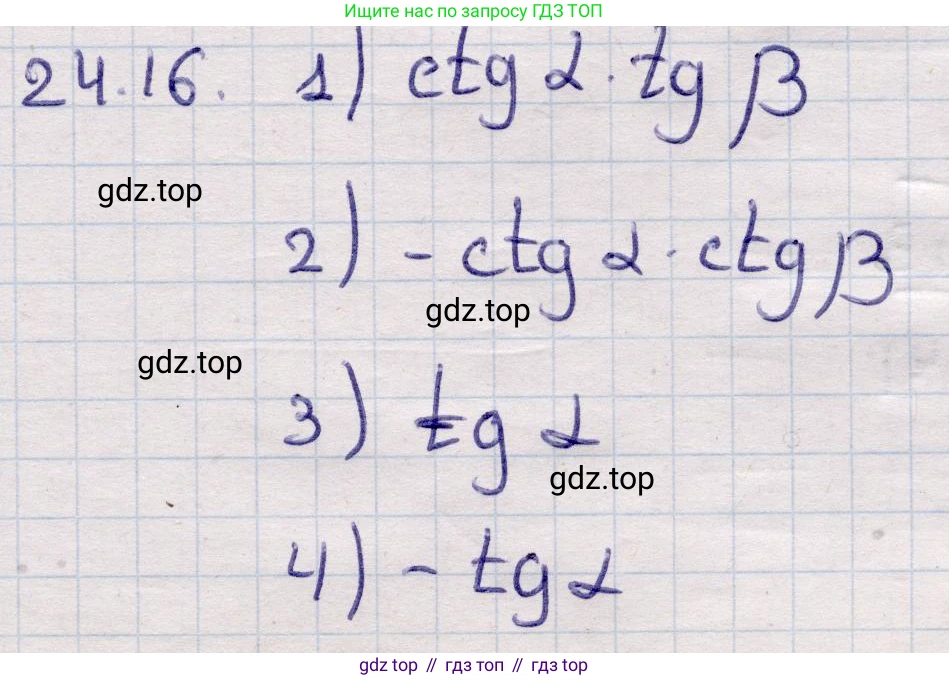 Ищите нас по запросу ГДЗ ТОП
24.16. 1) ctg α · tg β
gdz.top
2) - ctg α · ctg β
gdz.top
gdz.top
3) tg α
gdz.top
4) - tg α
gdz top // гдз топ // гдз top